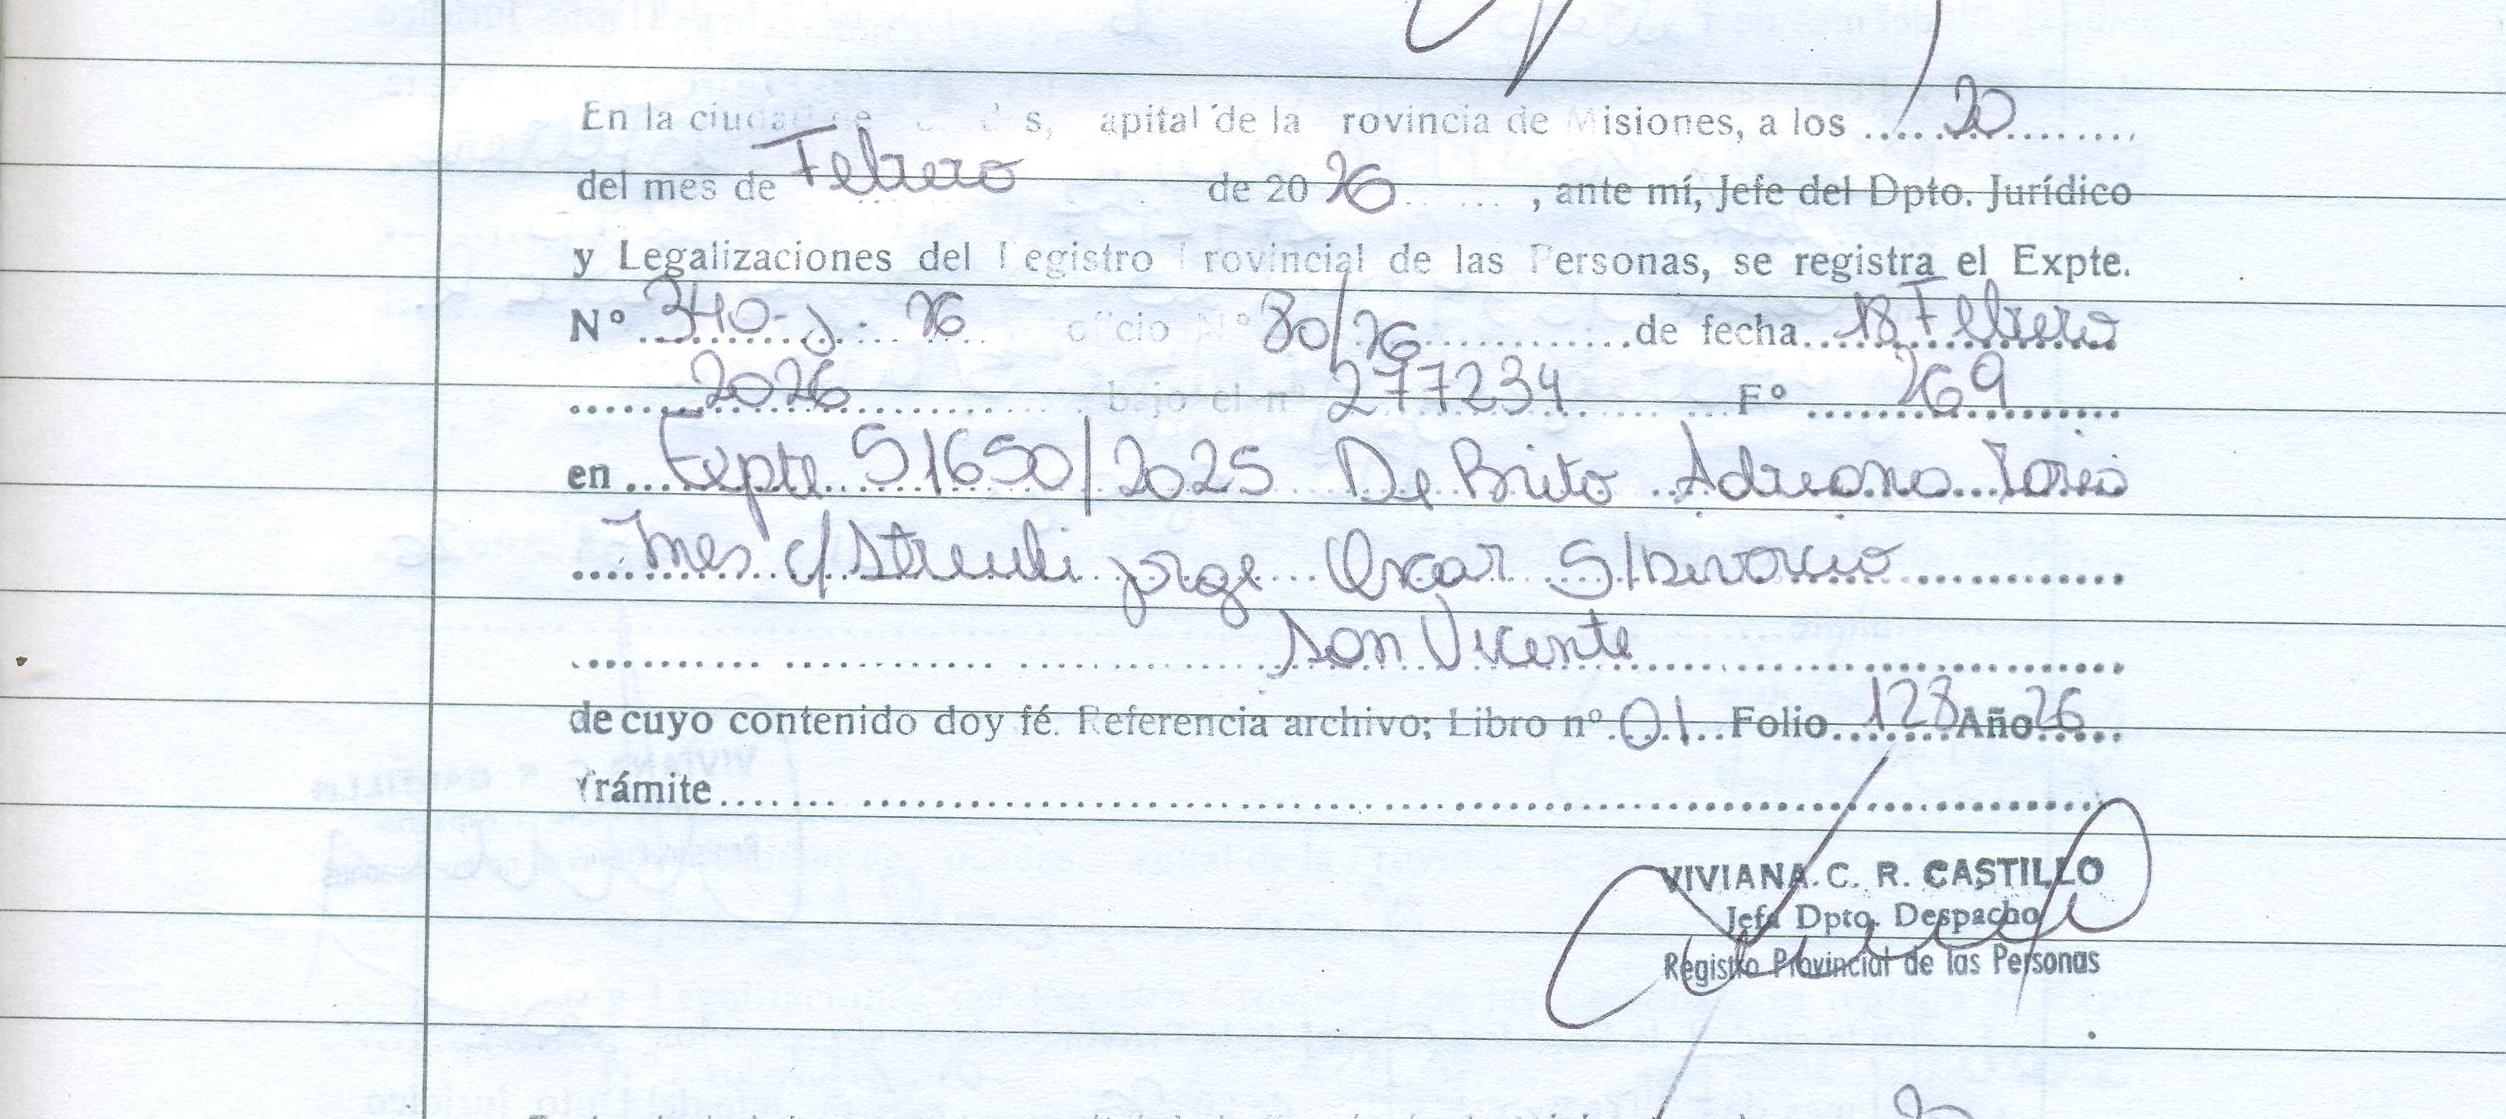 En la ciudad de s, apital de la rovincia de Misiones, a los 20
del mes de Febrero de 2026, ante mí, Jefe del Dpto. Jurídico
y Legalizaciones del Registro Provincial de las Personas, se registra el Expte.
Nº 340-J-26 oficio Nº 80/26 de fecha 18 Febrero
2026 bajo el nº 277234 Fº 269
en Expte 51650/2025 De Brito Adriana
Ines c/ Jorge Oscar S/Divorcio
San Vicente
de cuyo contenido doy fé. Referencia archivo; Libro nº 01 Folio 128 Año 26
Trámite
VIVIANA C. R. CASTILLO
Jefa Dpto. Despacho
Registro Provincial de las Personas